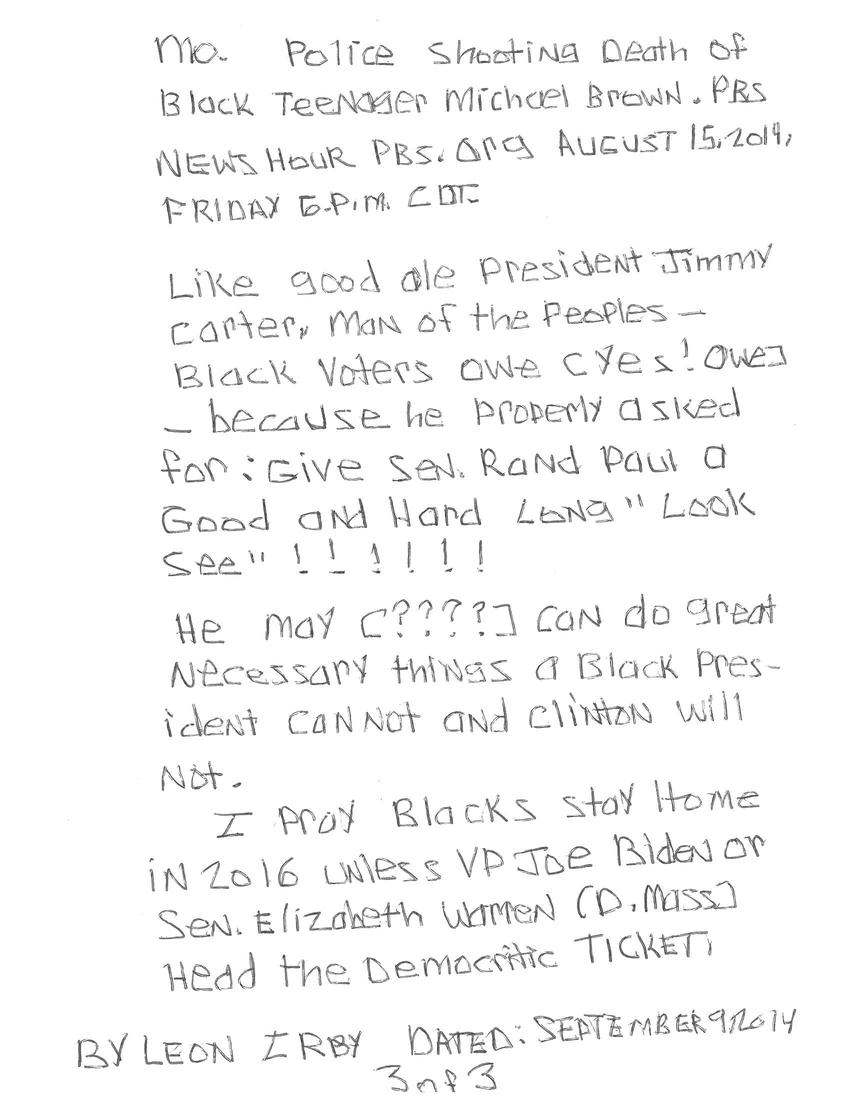 Mo. Police Shooting Death of
Black Teenager Michael Brown. PBS
NEWS HOUR PBS.org AUGUST 15, 2014,
FRIDAY 6.P.M. CDT.
Like good ole President Jimmy
Carter, Man of the Peoples —
Black Voters owe [Yes! Owe]
— because he properly asked
for: Give Sen. Rand Paul a
Good and Hard Long "Look
See" ! ! ! ! ! !
He may [????] can do great
Necessary things a Black Pres-
ident cannot and Clinton will
Not.
I pray Blacks stay Home
in 2016 unless VP Joe Biden or
Sen. Elizabeth Warren (D. Mass]
Head the Democritic TICKET.
BY LEON IRBY DATED: SEPTEMBER 9, 2014
3 of 3